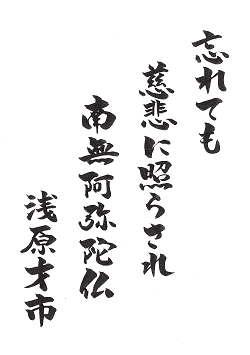 忘れても
慈悲に照らされ
南無阿弥陀仏
浅原才市